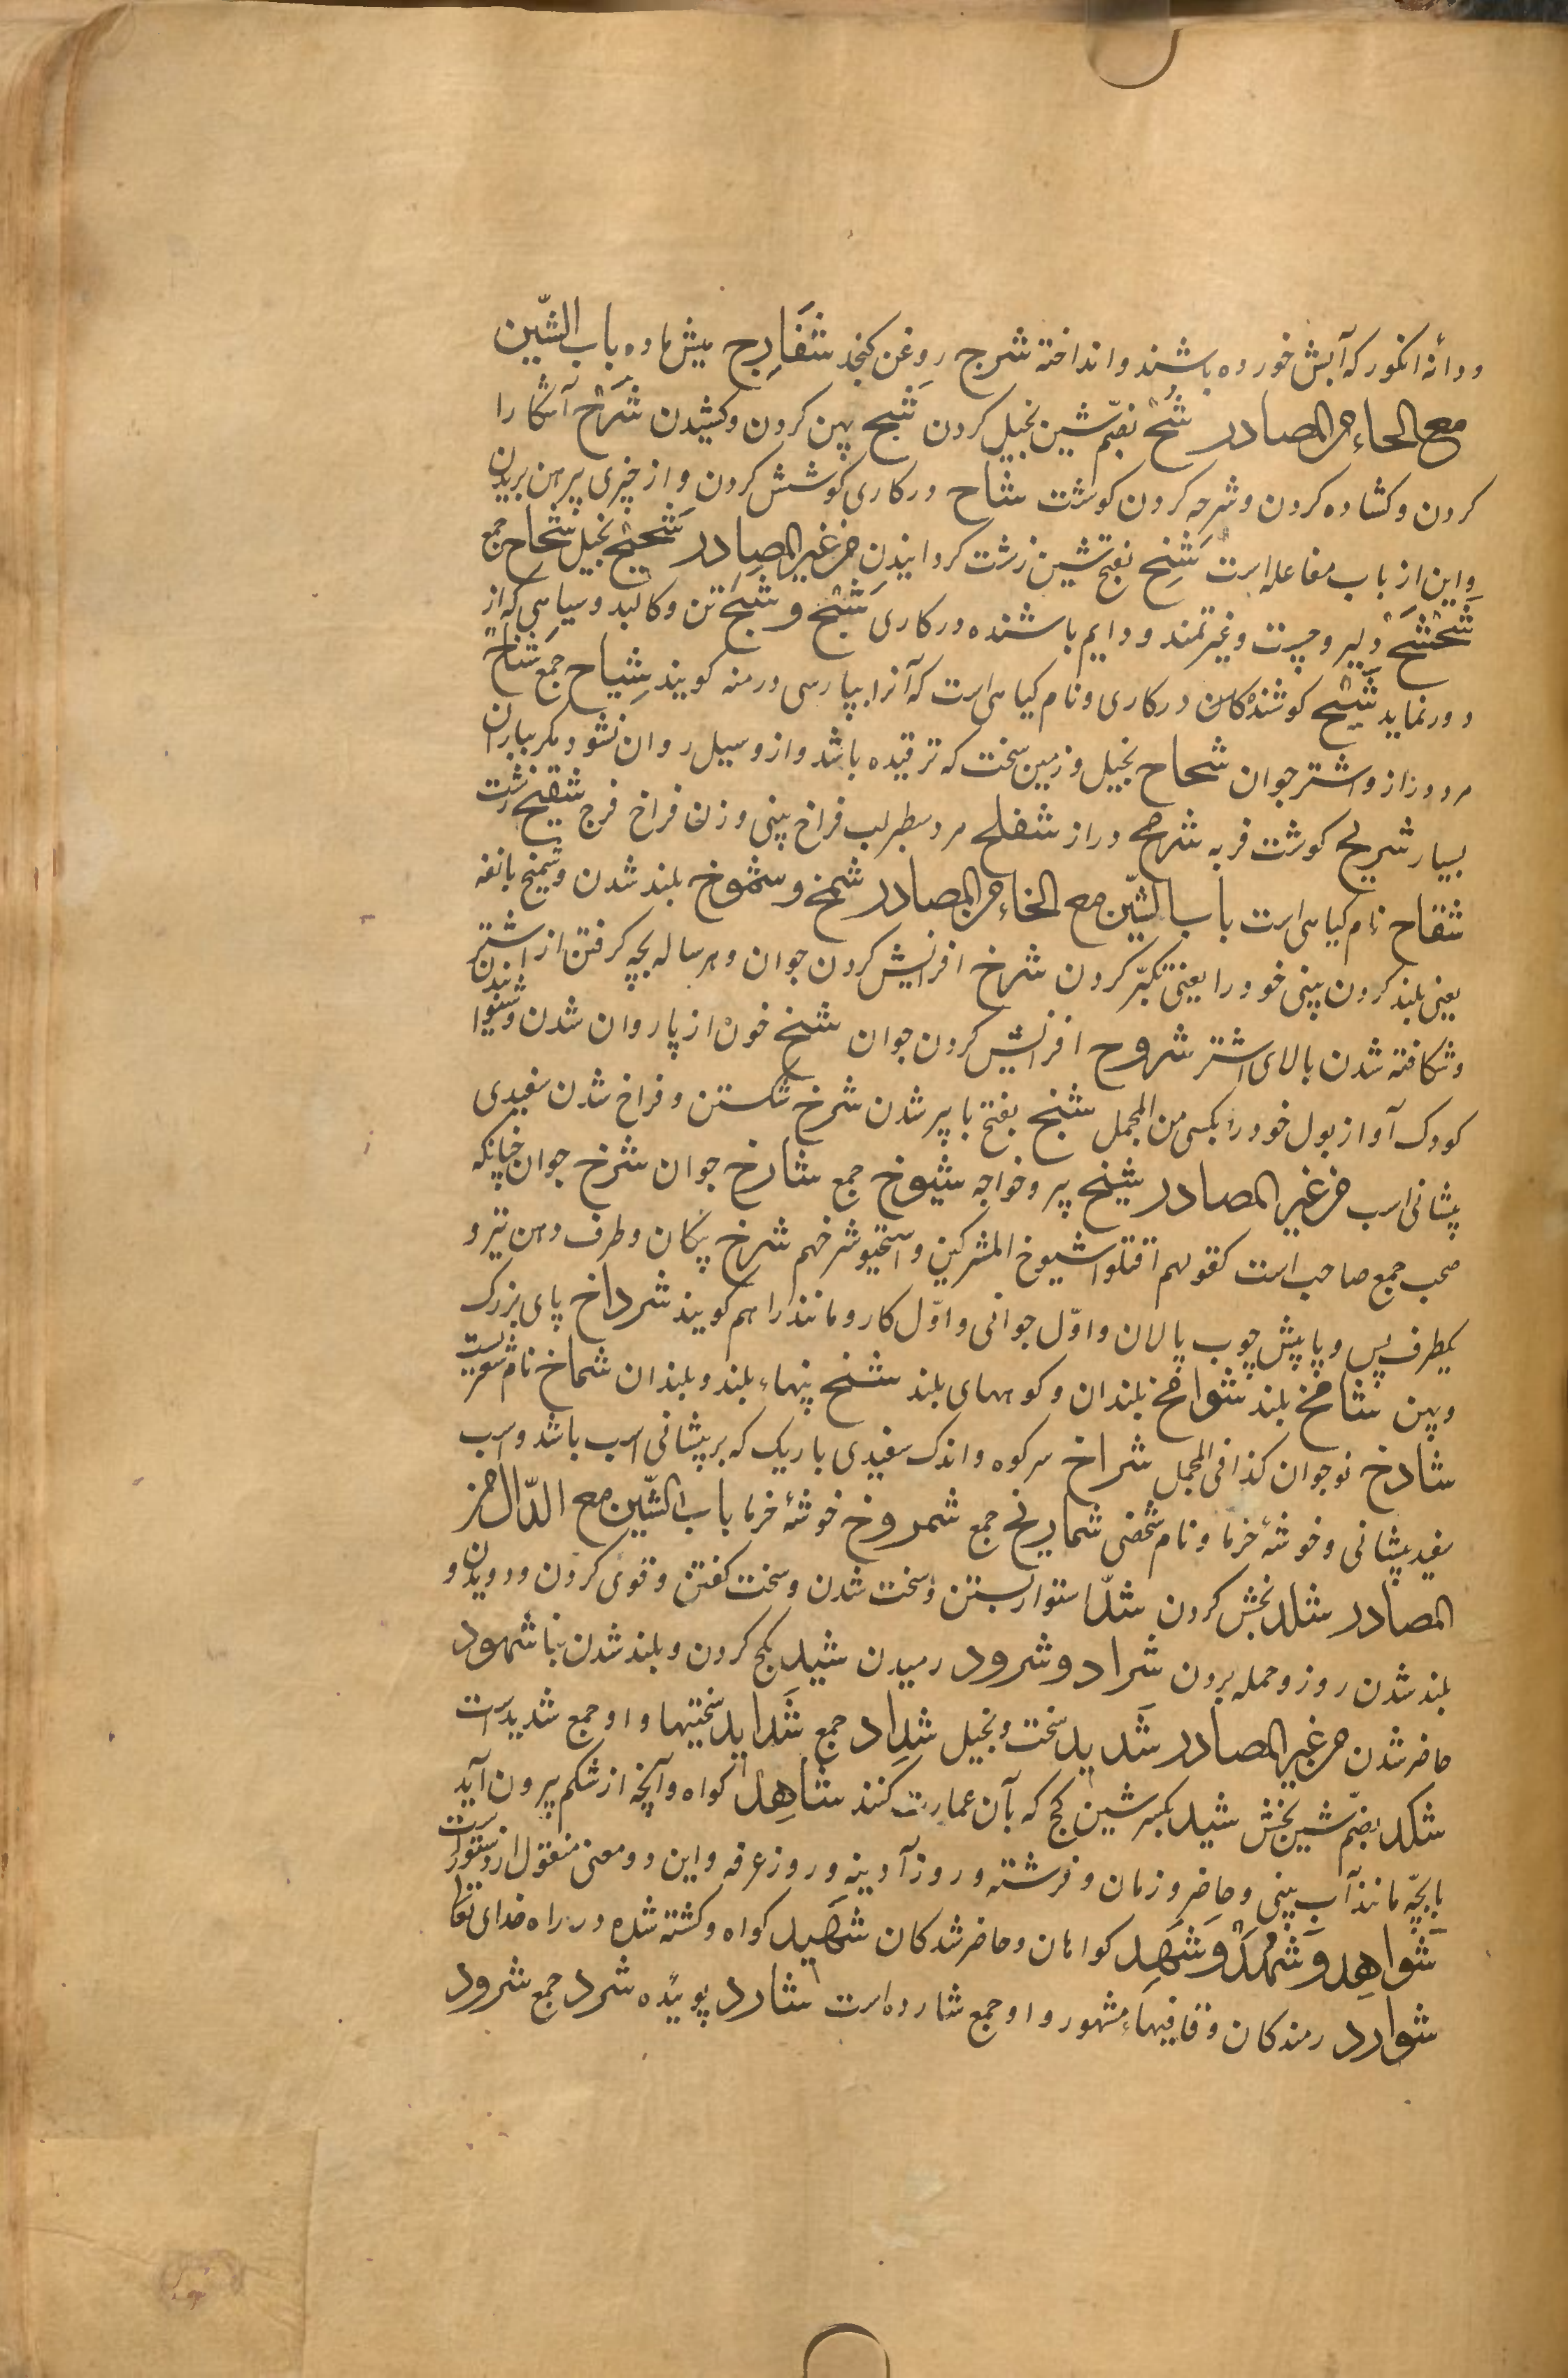 ودانهٔ انکور که آبش خورده باشند وانداخته شرج روغن کنجد شَفَارِج میش ماده باب الشّین
مع الحاء من المصادر شُحّ بضمّ شین بخیلی کردن شَبح پهن کردن وکشیدن شَرْح آشکارا
کردن وکشاده کردن وشرحه کردن کوشت شاح درکاری کوشش کردن واز چیزی پرهیزیدن
واین از باب مفاعله است شَنح بفتح شین زشت کردانیدن من غیر المصادر شَحِیح بخیل شحاح جمع
شَحْشَح دلیر وچست وغیرتمند ودایم باشنده درکاری شَبْح وشَبَح تن وکالبد وسیاهی که از
دور نماید شَیْح کوشندهٔ کلان درکاری ونام کیاهی است که آنرا بپارسی درمنه کویند شِیاح جمع شناح
مرد دراز واشتر جوان شحاح بخیل وزمین سخت که ترقیده باشد وازو سیل روان نشود مکر بباران
بسیار شریح کوشت فربه شرمح دراز شفلح مرد سطبر لب فراخ بینی وزن فراخ فرج شقیح زشت
شقاح نام کیاهی است باب الشّین مع الخاء من المصادر شمخ وشموخ بلند شدن وشمخ بانفه
یعنی بلند کردن بینی خود را یعنی تکبّر کردن شرخ افزایش کردن جوان وهر ساله بچه کرفتن از اشتر
وشکافته شدن بالای اشتر شروح افزایش کردن جوان شخ خون از پا روان شدن وشنوانیدن
کودک آواز بول خود را بکسی من المجمل شیخ بفتح با پیر شدن شدخ شکستن وفراخ شدن سفیدی
پیشانی اسب من غیر المصادر شیخ پیر وخواجه شیوخ جمع شارخ جوان شرخ جوان چنانکه
صحب جمع صاحب است کقولهم اقتلوا شیوخ المشرکین واستحیو شرخهم شرخ پیکان وطرف دهن تیر و
یکطرف پس وپاپیش چوب پالان واوّل جوانی واوّل کار ومانند را هم کویند شرداخ پای بزرک
وپهن شامخ بلند شوامخ بلندان وکوههای بلند شمخ بینهاء بلند وبلندان شماخ نام شعریست
شادخ نوجوان کذا فی المجمل شراخ سرکوه واندک سفیدی باریک که بر پیشانی اسب باشد واسب
سفید پیشانی وخوشهٔ خرما ونام شخصی شماریخ جمع شمروخ خوشهٔ خرما باب الشّین مع الدّال من
المصادر شکد بخشش کردن شدّ استوار بستن وسخت شدن وسخت کفتن وقوی کردن ودویدن و
بلند شدن روز وحمله بردن شراد وشرود رمیدن شید بکچ کردن وبلند شدن بنا شهود
حاضر شدن من غیر المصادر شَدید سخت وبخیل شِداد جمع شَداید سختیها واو جمع شدیده است
شکد بضمّ شین بخشش شید بکسر شین کچ که بآن عمارت کنند شاهِد کواه وآنچه از شکم بیرون آید
با بچّه مانند آب بینی وحاضر وزمان وفرشته وروز آدینه وروز عرفه واین دو معنی منقول از دستور است
شَواهِد وشُهَّد وشَهِد کواهان وحاضر شدکان شَهید کواه وکشته شده در راه خدای تعالی
شوارد رمندکان وقافیهاء مشهور واو جمع شارده است شارد پوینده شرد جمع شرود